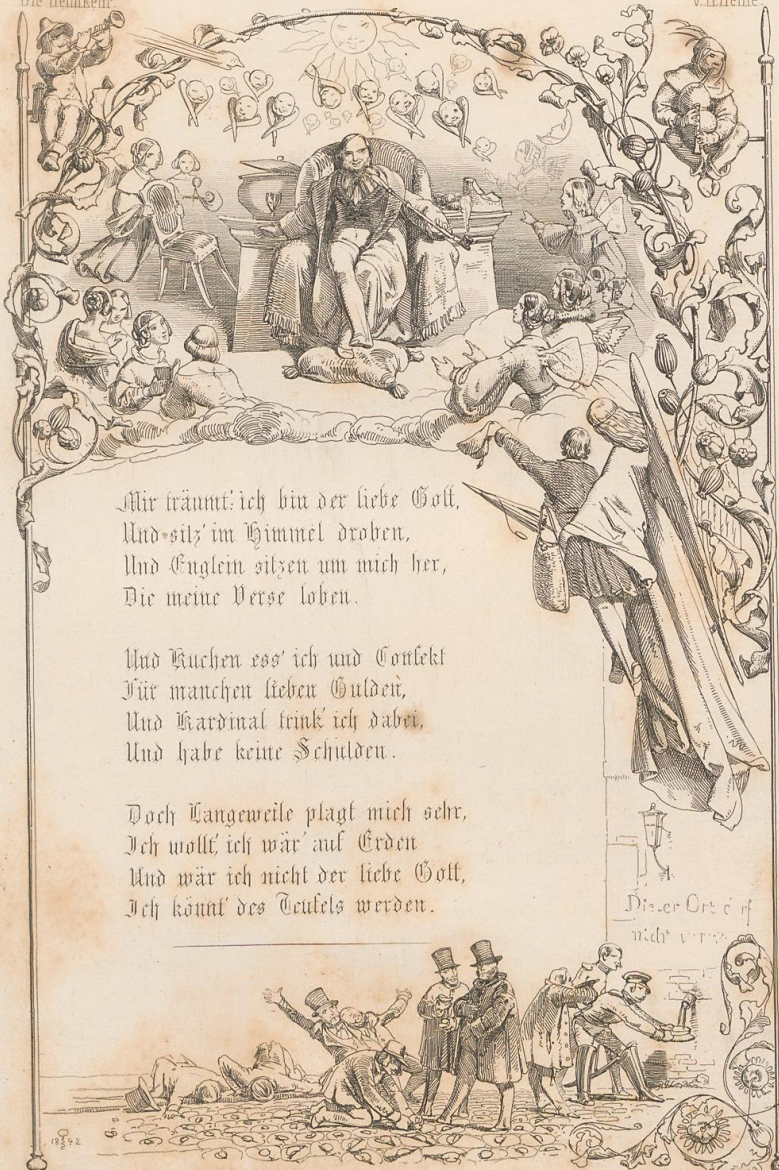 Die Heimkehr.
v. H. Heine.
Mir träumt': ich bin der liebe Gott,
Und sitz' im Himmel droben,
Und Englein sitzen um mich her,
Die meine Verse loben.
Und Kuchen ess' ich und Confekt
Für manchen lieben Gulden,
Und Kardinal trink' ich dabei,
Und habe keine Schulden.
Doch Langeweile plagt mich sehr,
Ich wollt', ich wär' auf Erden
Und wär ich nicht der liebe Gott,
Ich könnt' des Teufels werden.
Dieser Ort darf
nicht
1842